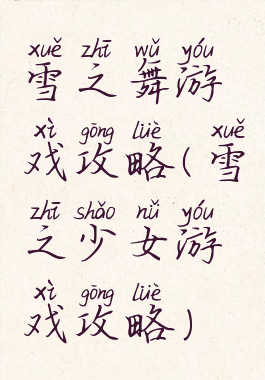 xuě zhī wǔ yóu
雪之舞游
xì gōng lüè xuě
戏攻略(雪
zhī shǎo nǔ yóu
之少女游
xì gōng lüè
戏攻略)